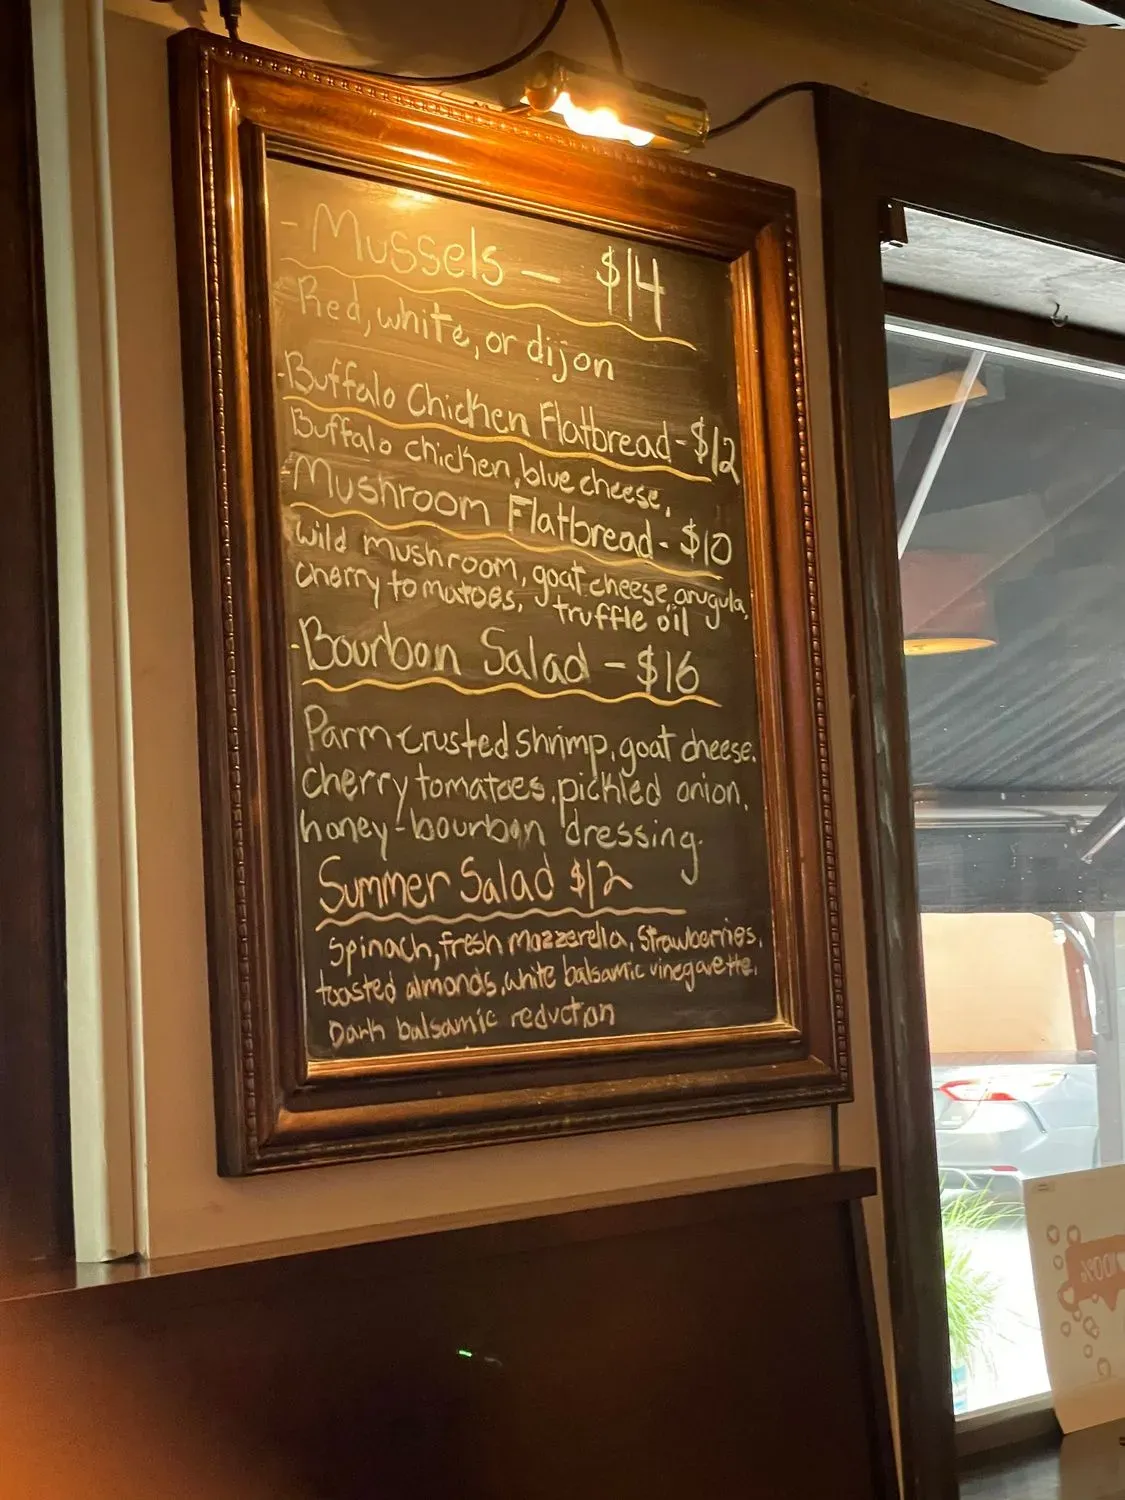 - Mussels - $14
Red, white, or dijon
-Buffalo Chicken Flatbread-$12
Buffalo chicken, blue cheese,
-Mushroom Flatbread-$10
wild mushroom, goat cheese, arugula,
cherry tomatoes, truffle oil
-Bourbon Salad - $16
Parm crusted shrimp, goat cheese,
cherry tomatoes, pickled onion,
honey-bourbon dressing.
Summer Salad $12
Spinach, fresh mozzerella, Strawberries,
toasted almonds, white balsamic vinegarette,
Dark balsamic reduction
100%